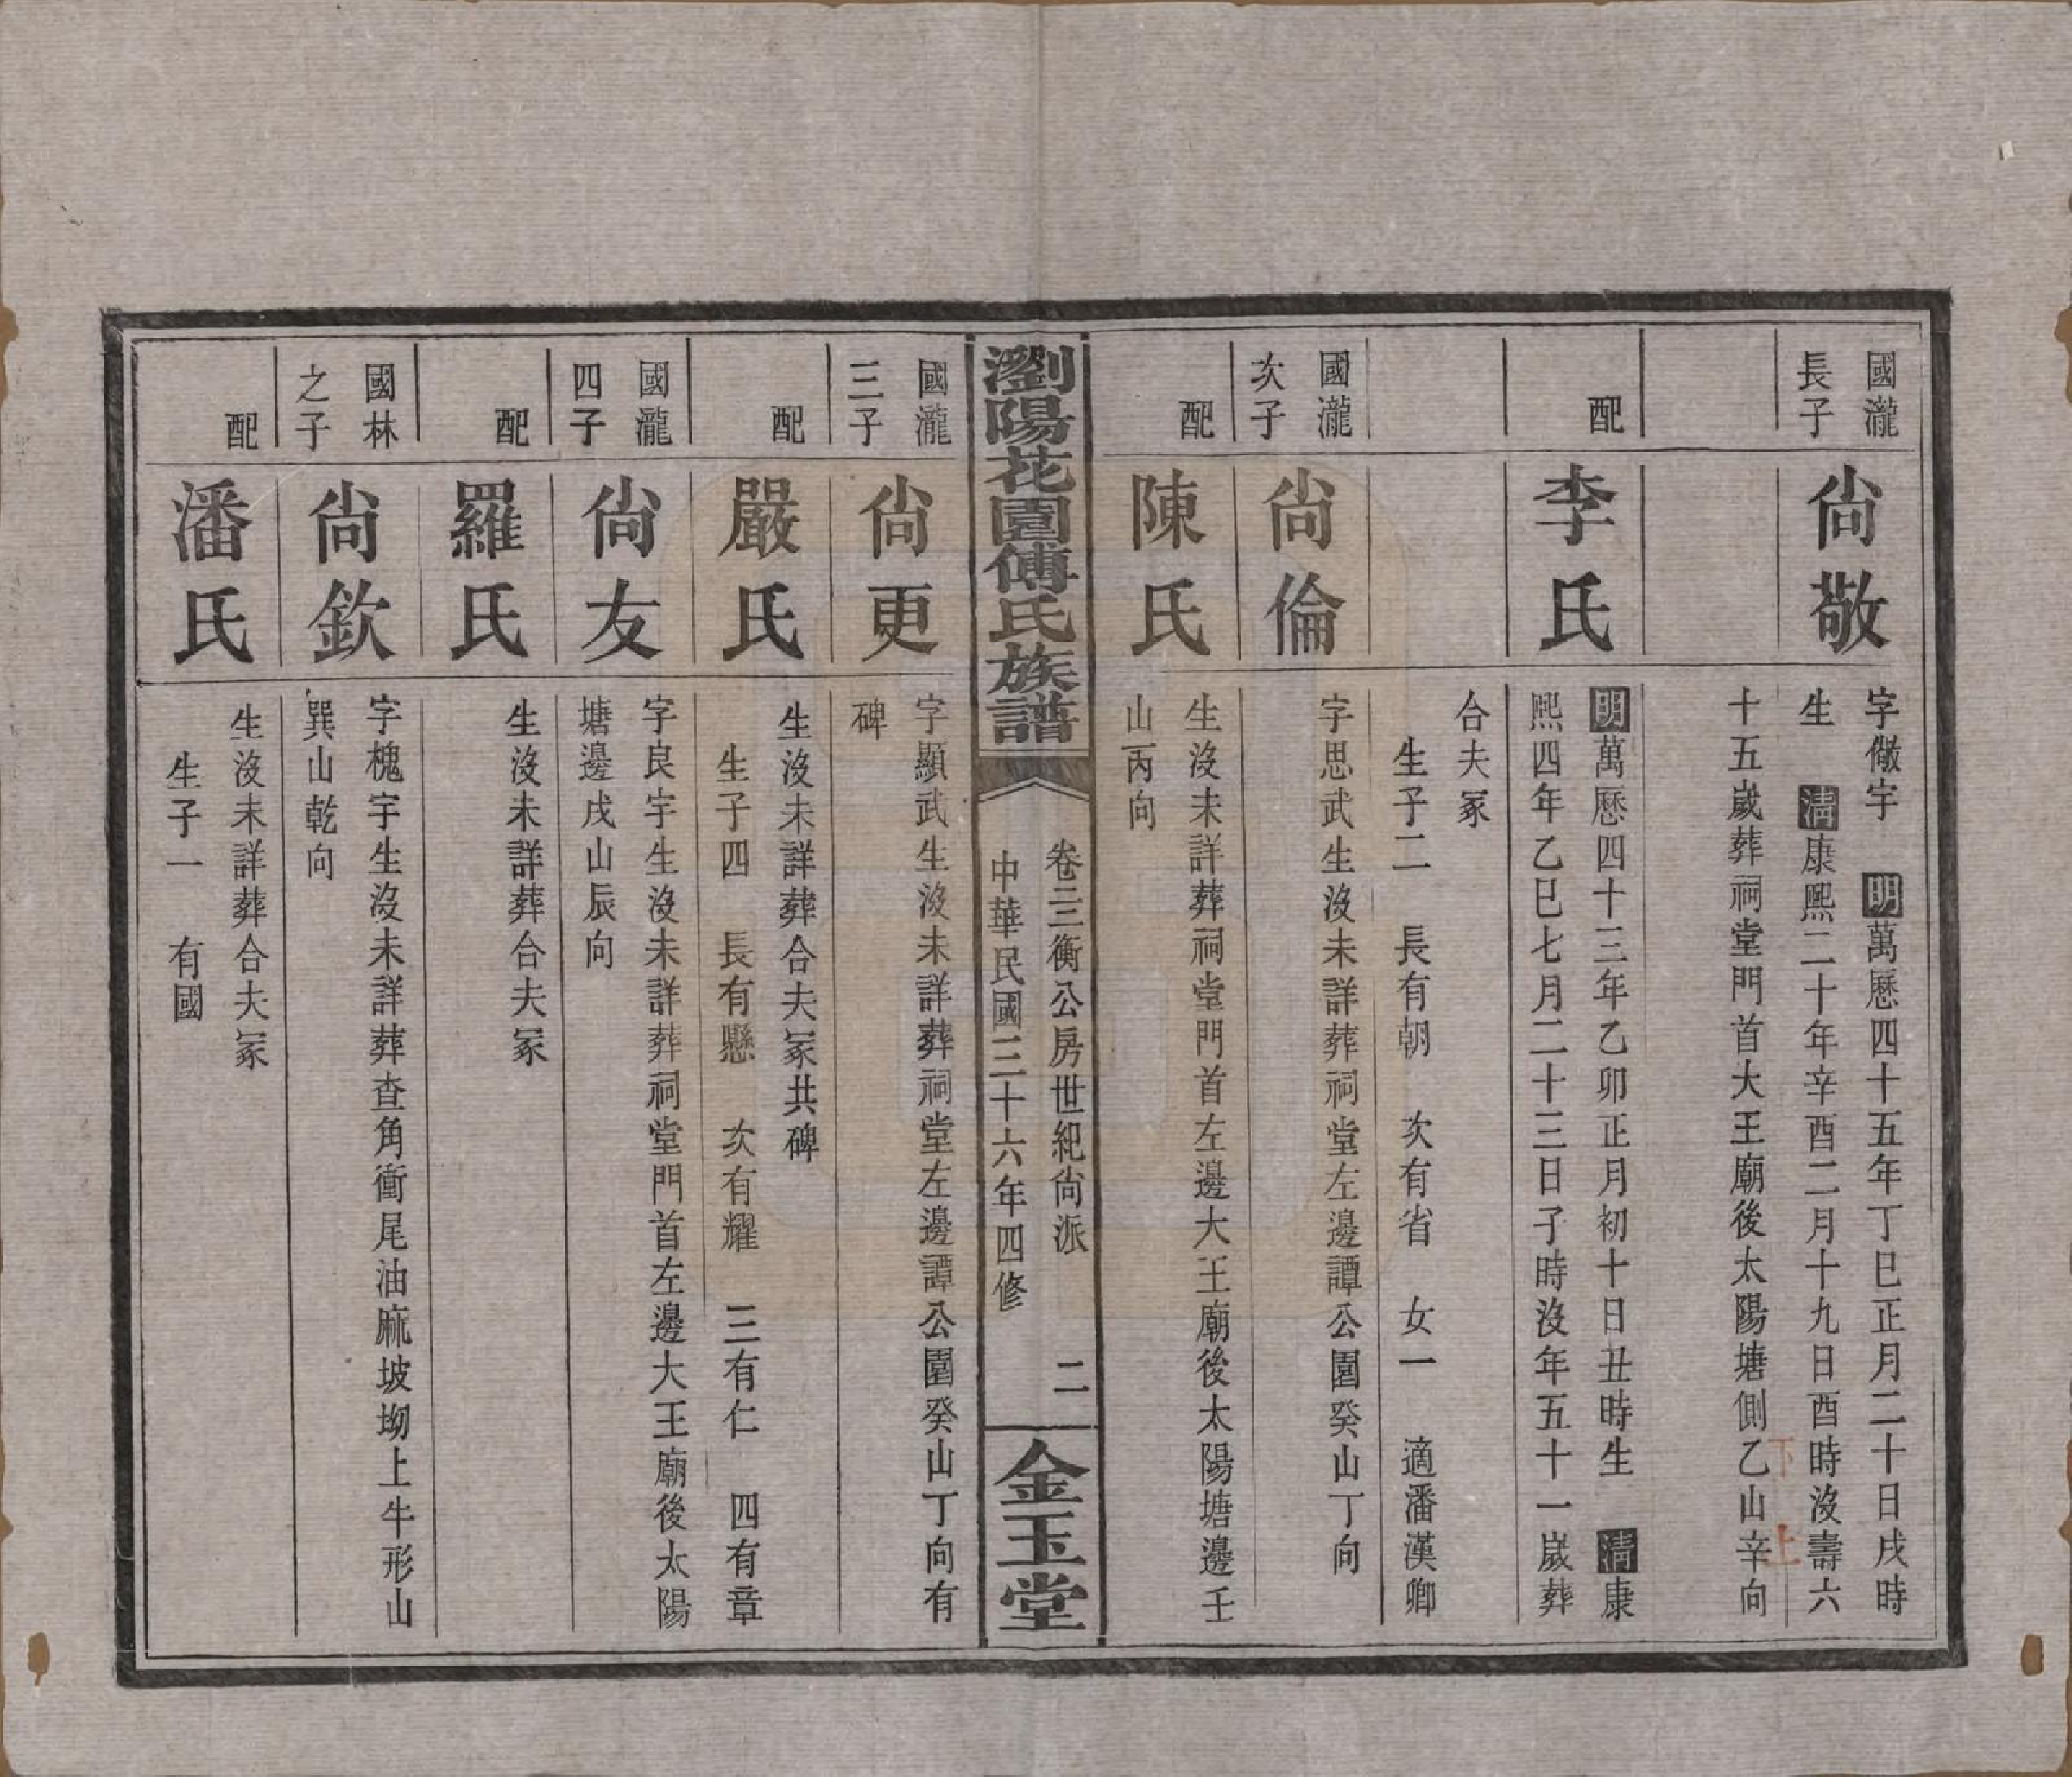 國瀧
長子
尙敬
字儆宇　明萬曆四十五年丁巳正月二十日戌時
生　清康熙二十年辛酉二月十九日酉時沒壽六
十五歲葬祠堂門首大王廟後太陽塘側乙山辛向
配
李氏
明萬曆四十三年乙卯正月初十日丑時生　清康
熙四年乙巳七月二十三日子時沒年五十一歲葬
合夫冢
生子二　長有朝　次有省　女一　適潘漢卿
國瀧
次子
尙倫
字思武生沒未詳葬祠堂左邊譚公園癸山丁向
配
陳氏
生沒未詳葬祠堂門首左邊大王廟後太陽塘邊壬
山丙向
瀏陽花園傅氏族譜
卷三三衡公房世紀尙派　二
中華民國三十六年四修
金玉堂
國瀧
三子
尙更
字顯武生沒未詳葬祠堂左邊譚公園癸山丁向有
碑
配
嚴氏
生沒未詳葬合夫冢共碑
生子四　長有懸　次有耀　三有仁　四有章
國瀧
四子
尙友
字良宇生沒未詳葬祠堂門首左邊大王廟後太陽
塘邊戌山辰向
配
羅氏
生沒未詳葬合夫冢
國林
之子
尙欽
字槐宇生沒未詳葬查角衝尾油麻坡坳上牛形山
巽山乾向
配
潘氏
生沒未詳葬合夫冢
生子一　有國
下
上